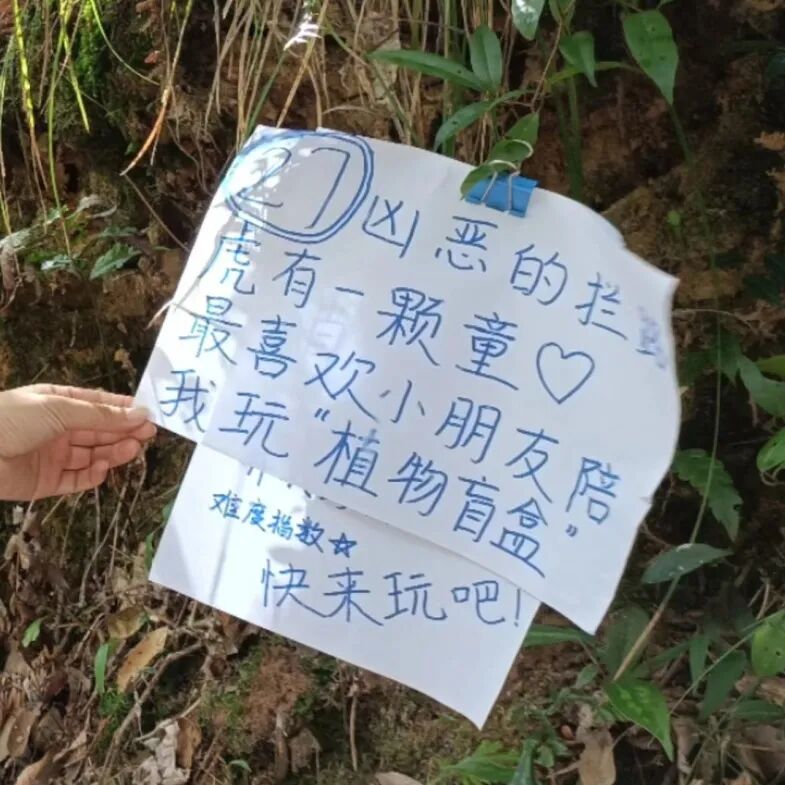 27 凶恶的拦路
虎有一颗童♡
最喜欢小朋友陪
我玩“植物盲盒”
难度指数☆
快来玩吧!